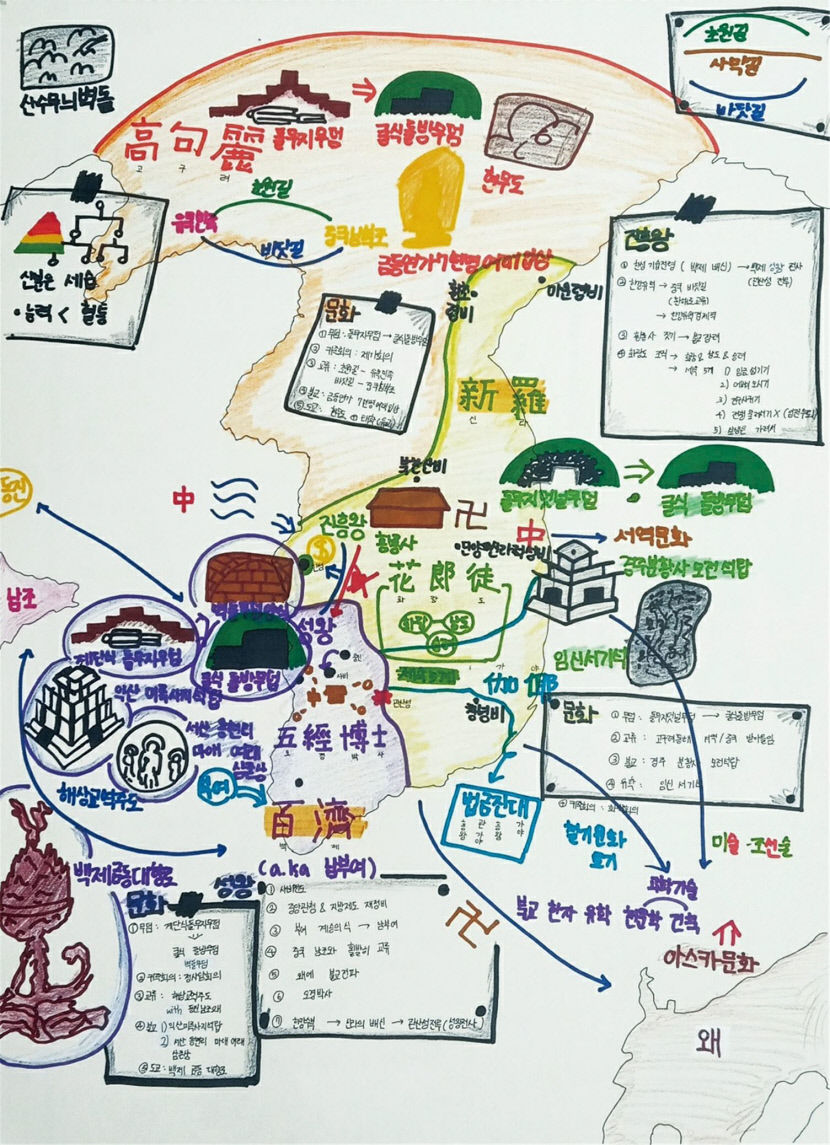 산수무늬벽돌
초원길
사막길
바닷길
高句麗
고 구 려
돌무지무덤
굴식돌방무덤
현무도
초원길
유목민족
바닷길
중국남북조
금동연가7년명 여래입상
신분은 세습
•능력 < 혈통
황초령비
마운령비
문화
① 무덤: 돌무지무덤 → 굴식돌방무덤
② 귀족회의: 제가회의
③ 교류: 초원길 - 유목민족
바닷길 - 중국남북조
④ 불교: 금동연가 7년명여래입상
⑤ 도교: 현무도
진흥왕
→ 백제 성왕 전사
(관산성 전투)
② 한강유역 → 중국 바닷길
→ 한강유역경제력
③ 황룡사 짓기 → 불교 장려
④ 화랑도 조직 → 화랑 & 낭도 & 승려
→ 세속 5계 1) 임금섬기기
2) 어버이모시기
3) 친구사귀기
5) 살생은 가려서
新羅
신 라
북한산비
돌무지덧널무덤
굴식 돌방무덤
동진
中
진흥왕
황룡사
卍
中
서역문화
•단양신라적성비
경주분황사 모전석탑
花郎徒
화 랑 도
화랑
낭도
승려
남조
성왕
계단식 돌무지무덤
굴식 돌방무덤
임신서기석
익산 미륵사지석탑
웅진
사비
관산성
가 야
伽倻
창녕비
五經博士
오 경 박 사
서산 용현리
마애 여래
삼존상
해상교역주도
부여
百濟
백 제
(a.k.a 남부여)
문화
① 무덤: 돌무지덧널무덤 → 굴식돌방무덤
③ 불교: 경주 분황사 모전석탑
④ 유학: 임신서기석
⑤ 귀족회의: 화백회의
법금진대
흥 관 흥 가
왕 가 왕 야
철기문화
토기
미술 - 조선술
과학기술
불교 한자 유학 천문학 건축
아스카문화
왜
백제금동대향로
문화
① 무덤: 계단식돌무지무덤
굴식 돌방무덤
벽돌무덤
② 귀족회의: 정사암회의
③ 교류: 해상교역주도
④ 불교 1) 익산미륵사지석탑
2) 서산 용현리 마애 여래
삼존상
⑤ 도교: 백제 금동 대향로
성왕
① 사비천도
② 중앙관청 & 지방제도 재정비
③ 부여 계승의식 → 남부여
④ 중국 남조와 활발히 교류
⑤ 왜에 불교전파
⑥ 오경박사
⑦ 한강수복 → 신라의 배신 → 관산성전투 (성왕전사)
卍